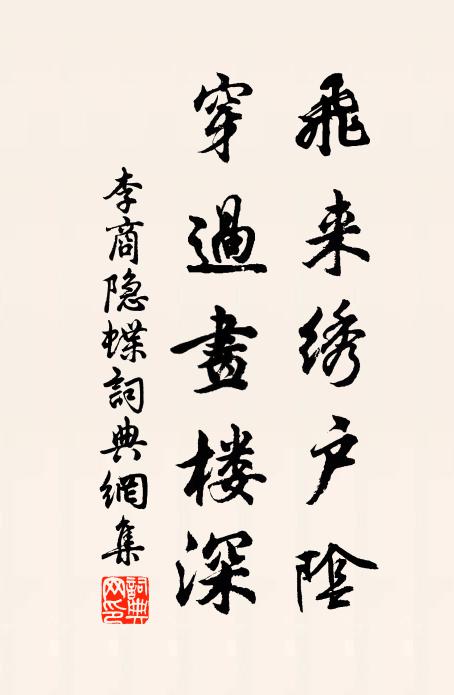 飛来绣户陰
穿過畫楼深
李商隐蝶詞典網集
詞典网印